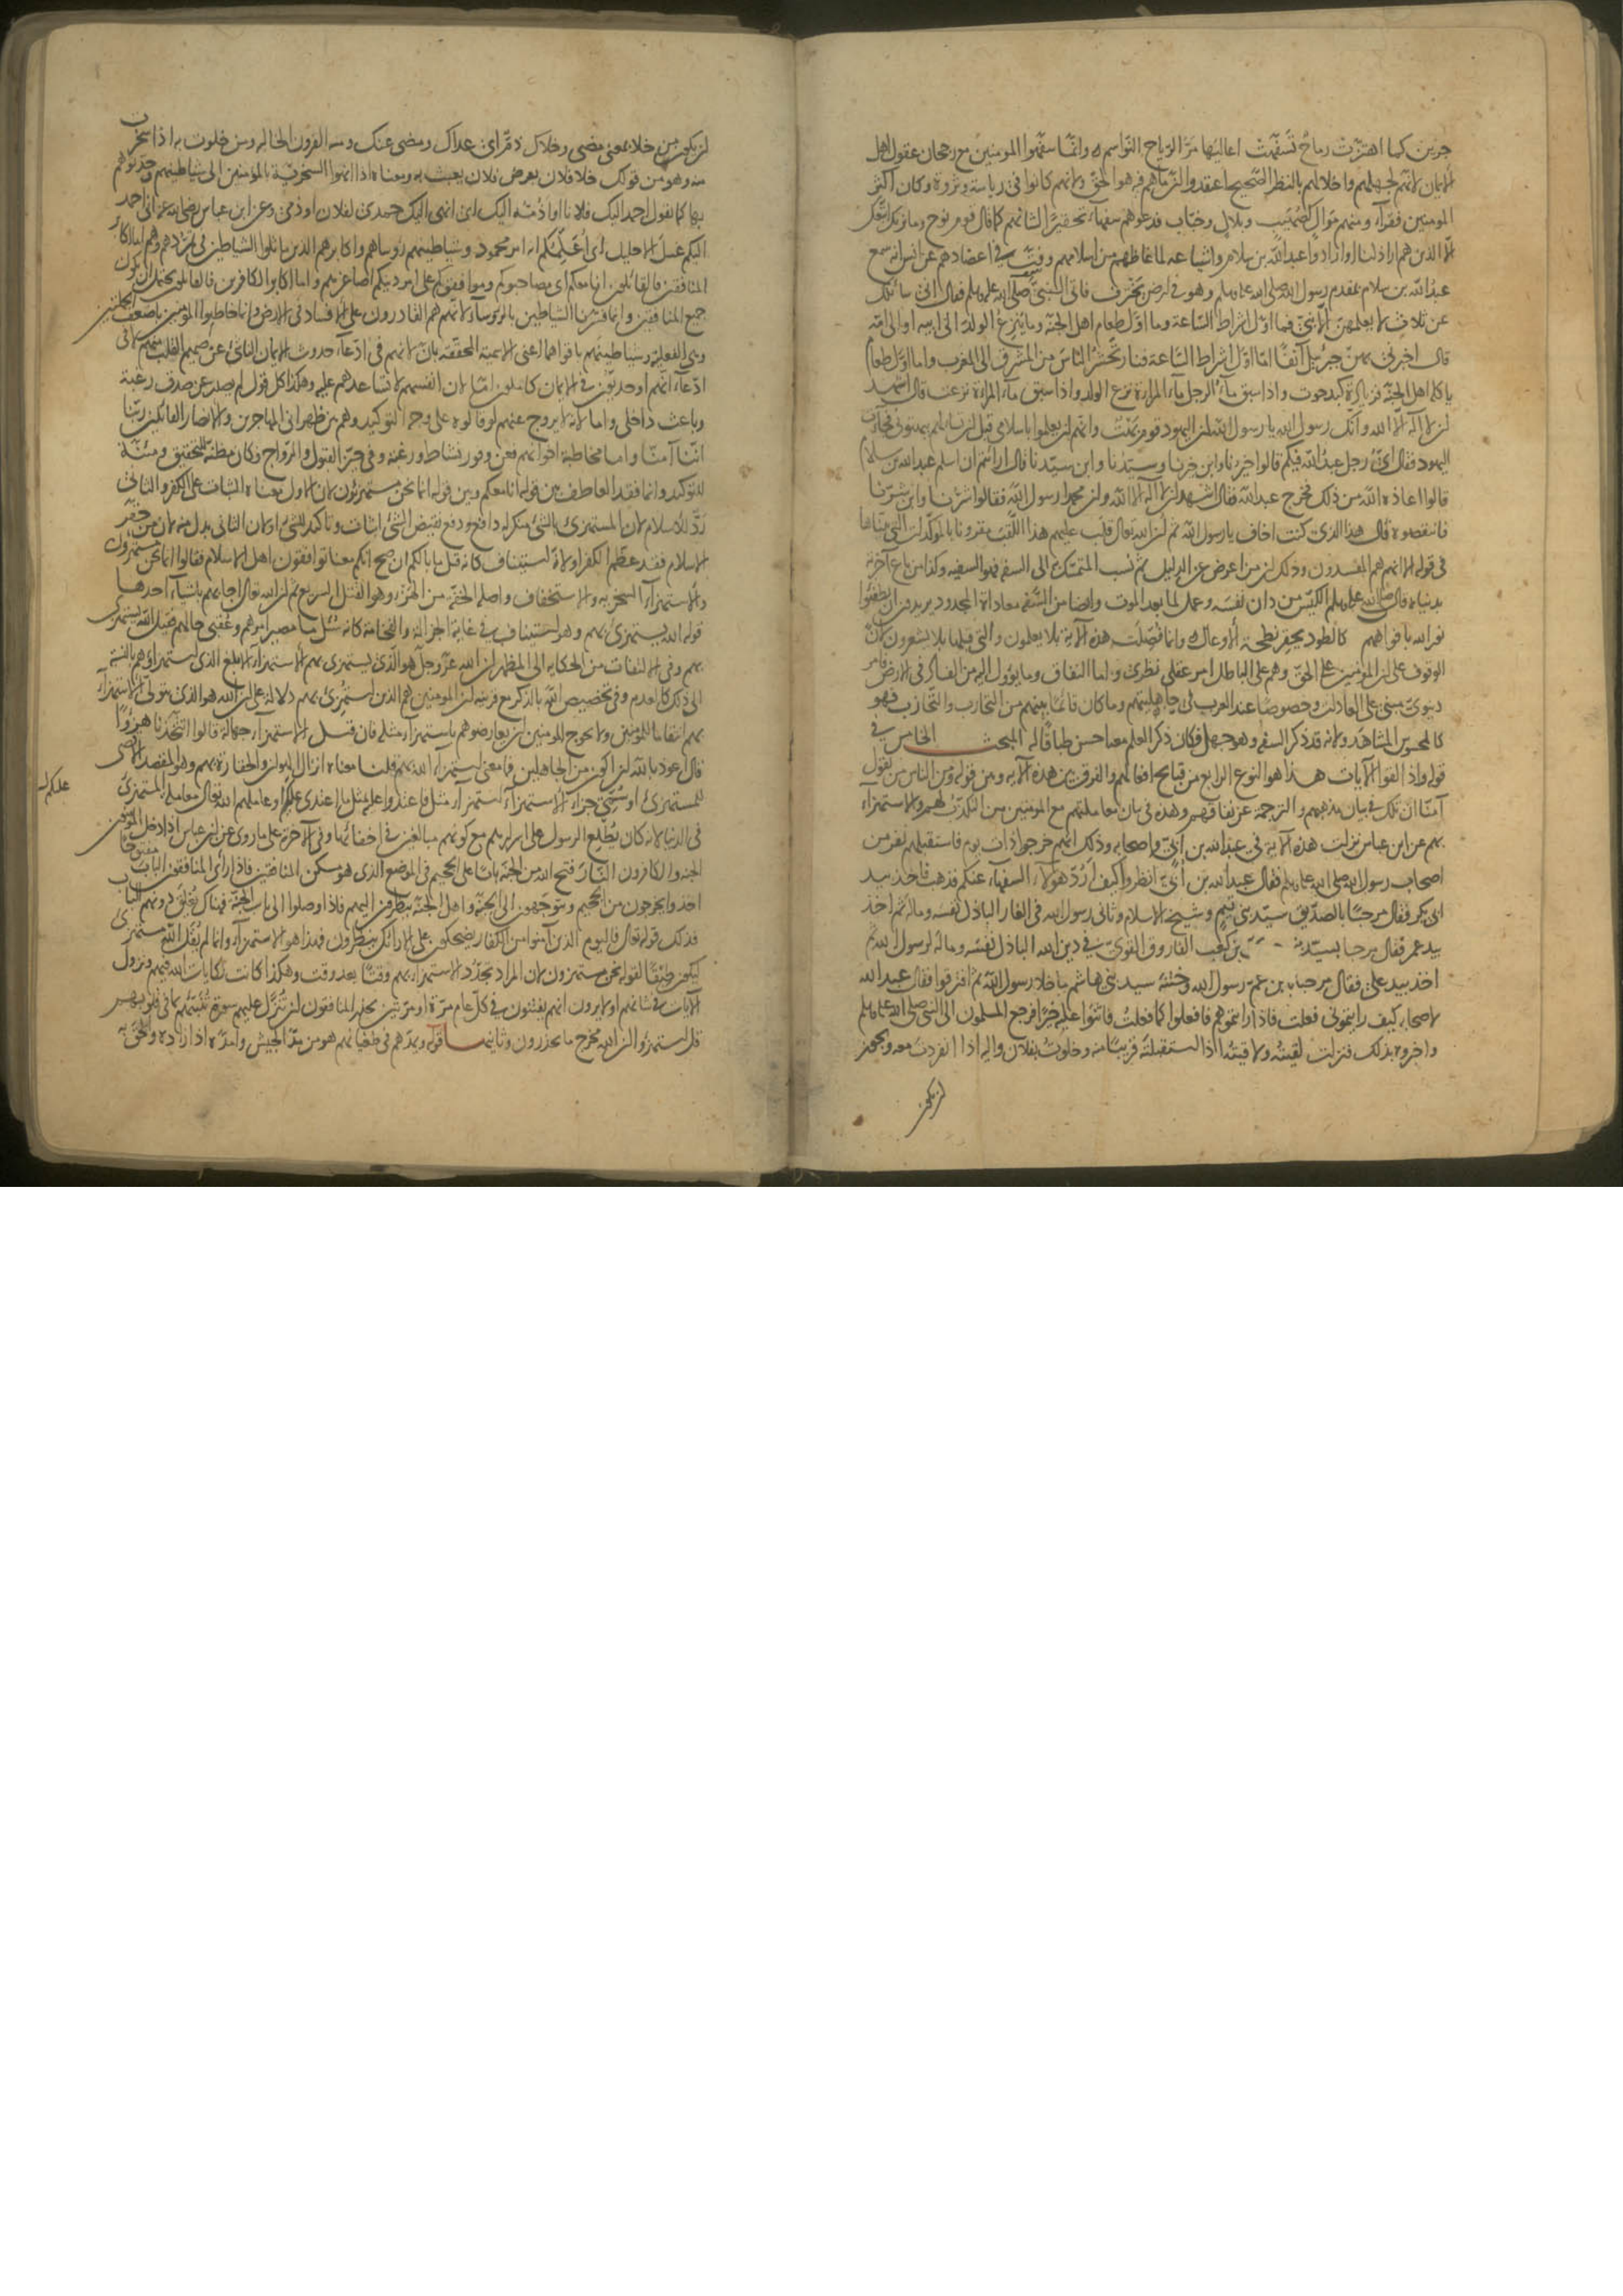 جرين كما اهتزت رماح تسفهت اعاليها مر الرياح النواسم وانما سفهوا المومنين مع رجحان عقول اهل
الايمان لانهم لجهلهم واخلالهم بالنظر الصحيح اعتقدوا ان ما هم فيه هو الحق ولانهم كانوا في رياسة وثروة وكان اكثر
المومنين فقراء ومنهم موال كصهيب وبلال وخباب فدعوهم سفهاء تحقيرا لشانهم كما قال قوم نوح وما نريك اتبعك
الا الذين هم اراذلنا او ارادوا عبد الله بن سلام واشياعه لما غاظهم من اسلامهم وفت في اعضادهم عن انس انه سمع
عبد الله بن سلام بمقدم رسول الله صلى الله عليه وسلم وهو في ارض يخترف فاتى النبي صلى الله عليه وسلم فقال اني سائلك
عن ثلاث لا يعلمهن الا نبي فما اول اشراط الساعة وما اول طعام اهل الجنة وما ينزع الولد الى ابيه او الى امه
قال اخبرني بهن جبرئيل آنفا اما اول اشراط الساعة فنار تحشر الناس من المشرق الى المغرب واما اول طعام
ياكله اهل الجنة فزيادة كبد حوت واذا سبق ماء الرجل ماء المراة نزع الولد واذا سبق ماء المراة نزعت قال اشهد
ان لا اله الا الله وانك رسول الله يا رسول الله ان اليهود قوم بهت وانهم ان يعلموا باسلامي قبل ان تسالهم بهتوني فجاءت
اليهود فقال اي رجل عبد الله فيكم قالوا خيرنا وابن خيرنا وسيدنا وابن سيدنا قال ارايتم ان اسلم عبد الله بن سلام
قالوا اعاذه الله من ذلك فخرج عبد الله فقال اشهد ان لا اله الا الله وان محمدا رسول الله فقالوا شرنا وابن شرنا
فانتقصوه قال هذا الذي كنت اخاف يا رسول الله ثم ان الله تعالى قلب عليهم هذا اللقب مقرونا بالموكدات التي بيناها
في قوله الا انهم هم المفسدون وذلك ان من اعرض عن الدليل ثم نسب المتمسك به الى السفه فهو السفيه وكذا من باع آخرته
بدنياه قال صلى الله عليه وسلم الكيس من دان نفسه وعمل لما بعد الموت وايضا من السفه معاداة المحدود يريدون ان يطفئوا
نور الله بافواههم كالطود يحقر نطحة الاوعال وانما فصلت هذه الآية بلا يعلمون والتي قبلها بلا يشعرون لان
الوقوف على ان المومنين على الحق وهم على الباطل امر عقلي نظري واما النفاق وما يؤول اليه من الفساد في الارض فامر
دنيوي مبني على العادات وخصوصا عند العرب في جاهليتهم وما كان قائما بينهم من التحارب والتحازب فهو
كالمحسوس المشاهد ولانه قد ذكر السفه وهو جهل فكان ذكر العلم معه احسن طباقا له المبحث الخامس في
قوله واذا لقوا الآيات هذا هو النوع الرابع من قبايح افعالهم والفرق بين هذه الآية ومن قوله ومن الناس من يقول
آمنا ان تلك في بيان مذهبهم والترجمة عن نفاقهم وهذه في بيان معاملتهم مع المومنين من التكذب لهم والاستهزاء
بهم عن ابن عباس نزلت هذه الآية في عبد الله بن ابي واصحابه وذلك انهم خرجوا ذات يوم فاستقبلهم نفر من
اصحاب رسول الله صلى الله عليه وسلم فقال عبد الله بن ابي انظروا كيف ارد هؤلاء السفهاء عنكم فذهب فاخذ بيد
ابي بكر فقال مرحبا بالصديق سيد بني تيم وشيخ الاسلام وثاني رسول الله في الغار الباذل نفسه وماله ثم اخذ
بيد عمر فقال مرحبا بسيد بن كعب الفاروق القوي في دين الله الباذل نفسه وماله لرسول الله ثم
اخذ بيد علي فقال مرحبا يا بن عم رسول الله وختنه سيد بني هاشم ما خلا رسول الله ثم افترقوا فقال عبد الله
لاصحابه كيف رايتموني فعلت فاذا رايتموهم فافعلوا كما فعلت فاثنوا عليه خيرا فرجع المسلمون الى النبي صلى الله عليه وسلم
واخبروه بذلك فنزلت لقيته ولاقيته اذا استقبلته قريبا منه وخلوت بفلان واليه اذا انفردت معه ويجوز
ان يكون
ان يكون من خلا بمعنى مضى وخلاك ذم اي عداك ومضى عنك ومنه القرون الخالية ومن خلوت به اذا سخرت
منه وهو من قولك خلا فلان بعرض فلان يعبث به ومعناه اذا انهوا السخرية بالمؤمنين الى شياطينهم وحدثوهم
بها كما تقول احمد اليك فلانا او اذمه اليك اي انهي اليك حمدي لفلان او ذمي وعن ابن عباس رضي الله عنه اني احمد
اليكم غسل الاحليل اي اعلمكم انه امر محمود وشياطينهم رؤساهم واكابرهم الذين ماثلوا الشياطين في تمردهم وهم اما اكابر
المنافقين فالقائلون انا معكم اي مصاحبوكم وموافقوكم على امر دينكم اصاغرهم واما اكابر الكافرين فالقائلون يحتمل ان يكون
جميع المنافقين وانما فسرنا الشياطين بالرؤساء لانهم هم القادرون على الافساد في الارض وانما خاطبوا المؤمنين باضعف الجملتين
وهي الفعلية وشياطينهم باقواهما اعني الاسمية المحققة بان لانهم في ادعاء حدوث الايمان الناشئ عن صميم القلب منهم لا في
ادعاء انهم اوحديون في الايمان كاملون اما لان انفسهم لا تساعدهم عليه وهكذا كل قول لم يصدر عن صدق رغبة
وباعث داخلي واما لانه لا يروج عنهم لو قالوه على وجه التوكيد وهم بين ظهراني المهاجرين والانصار القائلين ربنا
اننا آمنا واما مخاطبة اخوانهم فعن وفور نشاط ورغبة وفي حيز القبول والرواج فكان مظنة للتحقيق ومئنة
للتوكيد وانما فقد العاطف بين قوله انا معكم وبين قوله انما نحن مستهزؤن لان الاول معناه الثبات على الكفر والثاني
رد للاسلام لان المستهزئ بالشيء منكر له دافع ودفع نقيض الشيء اثبات وتاكيد للشيء او لان الثاني بدل منه لان من حقر
الاسلام فقد عظم الكفر او لانه استيناف كانه قيل ما بالكم ان صح انكم معنا توافقون اهل الاسلام فقالوا انما نحن مستهزؤن
والاستهزاء السخرية والاستخفاف واصله الخفة من الهزء وهو القتل السريع ثم ان الله تعالى اجابهم باشياء احدها
قوله الله يستهزئ بهم وهو استيناف في غاية الجزالة والفخامة كانه سئل ما مصير امرهم وعقبى حالهم فقيل الله يستهزئ
بهم وفي الالتفات من الحكاية الى المظهر ان الله عز وجل هو الذي يستهزئ بهم الاستهزاء الابلغ الذي استهزاؤهم بالنسبة
الى ذلك كالعدم وفي تخصيص الله بالذكر مع قرينة ان المومنين هم الذين استهزئ بهم دلالة على ان الله هو الذي يتولى الاستهزاء
بهم انتقاما للمؤمنين ولا يحوج المومنين ان يعارضوهم باستهزاء مثله فان قيل الاستهزاء جهالة قالوا اتتخذنا هزوا
قال اعوذ بالله ان اكون من الجاهلين فما معنى استهزاء الله بهم قلنا معناه انزال الهوان والحقارة بهم وهو المقصد الاقصى
للمستهزئ او سمي جزاء الاستهزاء استهزاء مثل فاعتدوا عليه بمثل ما اعتدى عليكم او عاملهم الله تعالى معاملة المستهزئ
عليكم
في الدنيا لانه كان يطلع الرسول على اسرارهم مع كونهم مبالغين في اخفائها وفي الآخرة على ما روي عن ابن عباس اذا دخل المؤمنون
الجنة والكافرون النار فتح الله من الجنة بابا على الجحيم في الموضع الذي هو مسكن المنافقين فاذا راى المنافقون الباب مفتوحا
اخذوا يخرجون من الجحيم ويتوجهون الى الجنة واهل الجنة ينظرون اليهم فاذا وصلوا الى باب الجنة فهناك يغلق دونهم الباب
فذلك قوله تعالى فاليوم الذين آمنوا من الكفار يضحكون على الارائك ينظرون فهذا هو الاستهزاء وانما لم يقل الله مستهزئ
ليكون طبقا لقوله نحن مستهزؤن لان المراد تجدد الاستهزاء بهم وقتا بعد وقت وهكذا كانت نكايات الله فيهم ونزول
الآيات في شانهم اولا يرون انهم يفتنون في كل عام مرة او مرتين يحذر المنافقون ان تنزل عليهم سورة تنبئهم بما في قلوبهم
قل استهزؤا ان الله مخرج ما تحذرون وثانيها قوله ويمدهم في طغيانهم هو من مد الجيش وامده اذا زاده والحق به